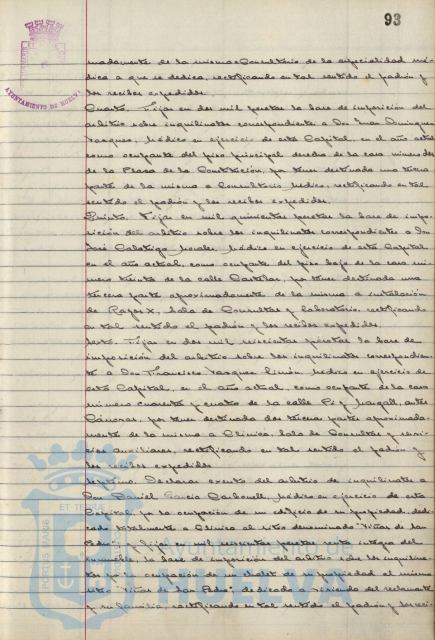 93
AYUNTAMIENTO DE HUELVA
madamente de la misma a Consultorio de la especialidad mé-
dica a que se dedica, rectificando en tal sentido el padrón y
los recibos expedidos.
Cuarto. Fijar en dos mil pesetas la base de imposición del
arbitrio sobre inquilinatos correspondiente a Don Juan Domínguez
Vazquez, Médico en ejercicio de esta Capital, en el año actual
como ocupante del piso principal derecha de la casa número
de la Plaza de la Constitución, por tener destinado una tercera
parte de la misma a Consultorio Médico, rectificando en tal
sentido el padrón y los recibos expedidos.
Quinto. Fijar en mil quinientas pesetas la base de impo-
sición del arbitrio sobre los inquilinatos correspondientes a Don
José Morales, Médico en ejercicio de esta Capital
en el año actual, como ocupante del piso bajo de la casa nú-
mero treinta de la calle Castelar, por tener destinado una
tercera parte aproximadamente de la misma a instalación
de Rayos X, Sala de Consultas y laboratorio, rectificando
en tal sentido el padrón y los recibos expedidos.
Sexto. Fijar en dos mil seiscientas pesetas la base de
imposición del arbitrio sobre los inquilinatos correspondien-
te a Don Francisco Vazquez Limón, Médico en ejercicio de
esta Capital, en el año actual, como ocupante de la casa
número cuarenta y cuatro de la calle Pí y Margall, antes
Cánovas, por tener destinada dos tercera partes aproximada-
mente de la misma a Clínica, Sala de Consultas y servi-
cios auxiliares, rectificando en tal sentido el padrón y
los recibos expedidos
Séptimo. Declarar exento del arbitrio de inquilinatos a
Don Daniel García Carbonell, Médico en ejercicio de esta
Capital, por la ocupación de un edificio de su propiedad, dedi-
cado totalmente a Clínica al sitio denominado "Viñas de San
Pedro" y fijar en mil seiscientas pesetas renta integra del
inmueble, la base de imposición del arbitrio sobre los inquilina-
tos por la ocupación de un chalet de su propiedad al mismo
sitio "Viñas de San Pedro", dedicado a vivienda del reclamante
y su familia, rectificando en tal sentido el padrón y los reci-
PORTUS MARIS ET TERRAE
Ayuntamiento de
HUELVA